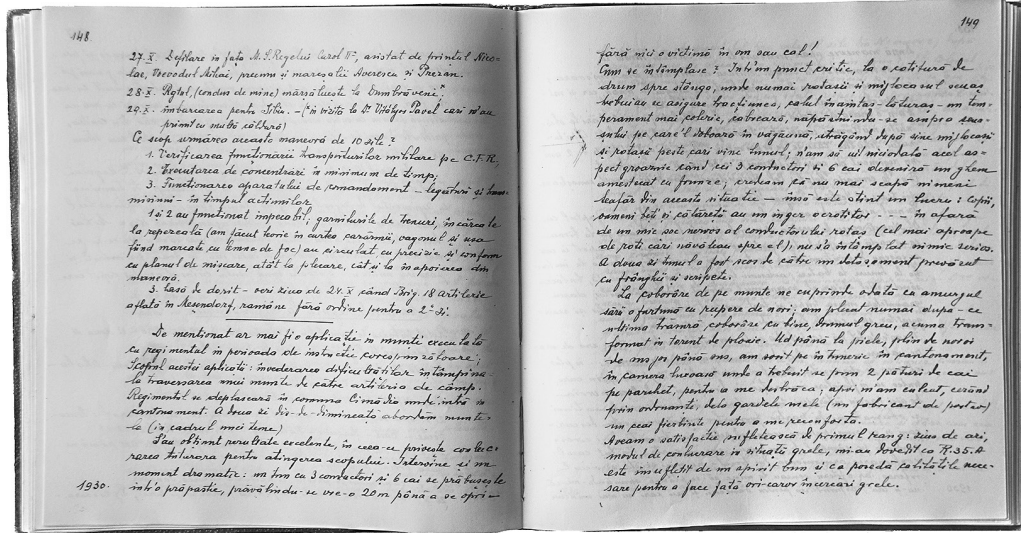 148.
27.X. Defilare în fața M.S. Regelui Carol IIlea, asistat de prințul Nico-
lae, Voevodul Mihai, precum și mareșalii Averescu și Prezan.
28.X. Rgtul, (condus de mine) mărșăluește la Dumbrăveni.
29.X. îmbarcarea pentru Sibiu. - (în vizita la Dr. Pavel cari m'au
primit cu multă căldură)
Ce scop urmărea aceasta manevră de 10 zile?
1. Verificarea funcționării transporturilor militare pe C.F.R.
2. Executarea de concentrări în minimum de timp;
3. Funcționarea aparatului de comandament - legături și trans-
misiuni - în timpul acțiunilor
1 și 2 au funcționat impecabil; garniturile de trenuri, încărcate
la repezeală (am făcut teorie în curtea cazărmii, vagonul și ușa
fiind marcate cu lemne de foc) au circulat cu precizie și conform
cu planul de mișcare, atât la plecare, cât și la înapoierea din
manevră.
3. lasă de dorit - vezi ziua de 24.X când Brig. 18 Artilerie
aflată în rămâne fără ordine pentru a 2a zi.
De menționat ar mai fi o aplicație în munte executată
cu regimentul în perioada de instrucție corespunzătoare;
Scopul acestei aplicații: învederarea dificultăților întâmpina-
te la traversarea unui munte de către artileria de câmp.
Regimentul se deplasează în comuna Cisnădia unde intră în
cantonament. A doua zi dis-de-dimineață abordăm munte-
le (în cadrul unei teme)
S'au obținut rezultate excelente, în ceea-ce privește conluc-
rarea tuturora pentru atingerea scopului. Intervine și un
moment dramatic: un tun cu 3 conductori și 6 cai se prăbușește
1930. într'o prăpastie, prăvălindu-se vre-o 20m până a se opri -
149
fără nici o victimă în om sau cal!
Cum se întâmplase? Intr'un punct critic, la o cotitură de
drum spre stânga, unde numai rotașii și mijlocașul
trebuiau să asigure tracțiunea, calul înaintaș-lăturaș - un tem-
perament mai coleric, cabrează, năpustindu-se asupra
pe care'l doboară în văgăună, atrăgând după sine mijlocașii
și rotașii peste cari vine tunul; n'am să uit niciodată acel as-
pect groaznic când cei 3 conductori și 6 cai deseniză un ghem
amestecat cu frunze; credeam că nu mai scapă nimeni
teafăr din aceasta situație - însă este știut un lucru: Copiii,
oamenii beți și călăreții au un înger ocrotitor . . . - în afară
de un mic șoc nervos al conductorului rotaș (cel mai aproape
de roți cari năvăleau spre el), nu s'a întâmplat nimic serios.
A doua zi tunul a fost scos de către un detașament prevăzut
cu frânghii și scripete.
La coborâre de pe munte ne cuprinde odată cu amurgul
serii o furtună cu rupere de nori; am plecat numai după-ce
ultimo coborâse cu bine, drumul greu, acuma trans-
format în torent de ploaie. Ud până la piele, plin de noroi
de jos până sus, am sosit pe întuneric în cantonament,
în camera luxoasă unde a trebuit să pun 2 pături de cai
pe parchet, pentru a me desbrăca; apoi m'am culcat, cerând
prin ordonanță, dela gazdele mele (un fabricant de postav)
un ceai fierbinte pentru a me reconforta.
Aveam o satisfacție sufletească de primul rang: ziua de azi,
modul de comportare în situații grele, mi-au dovedit ca R.36.A
este însuflețit de un spirit bun și ca posedă calitățile nece-
sare pentru a face față ori-caror încercări grele.